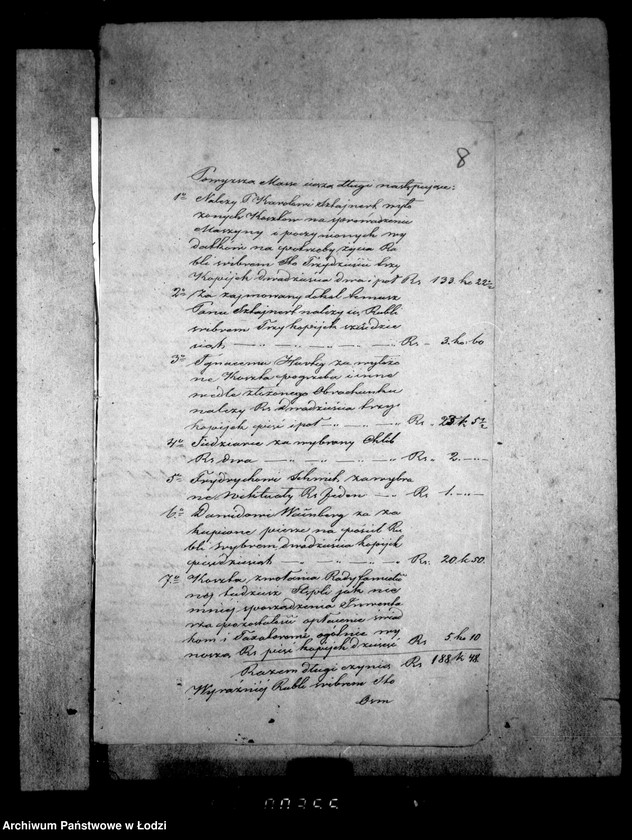 8
Powyższa Masse ciążą długi następujące:
1o Należy P. Karolowi Sztajnert wyło
żonych Kosztów na sprowadzenie
Maszyny i poczynionych wy
datków na potrzeby życia Ru
bli srebrem Sto Trzydzieści trzy
Kopiejek dwadzieścia dwa i pół Rs 133. ko 22½
2o Za zajmowany Lokal temuż
Panu Sztajnert należy się Rubli
srebrem Trzy kopiejek sześćdzie
siąt — Rs - 3. ko. 60
3o Ignacemu za wyłożo
ne Koszta pogrzebu i inne
wedle złożonego Obrachunku
należy Rs. dwadzieścia trzy
kopiejek pięć i pół — Rs - 23 k. 5½
4o za wybrany Chleb
Rs. dwa — Rs - 2. —
5o Frydrychowi Schmidt za wybra
ne Wiktuały Rs. Jeden — Rs 1. —
6o Dawidowi Wajnberg za za
kupione pierze na pościel Ru
bli srebrem dwadzieścia kopiejek
pięćdziesiąt — Rs. 20 k. 50.
7o Koszta zwołania Rady familij
nej tudzież Stępli jak nie
mniej sporządzenia Inwenta
rza pozostałości opłacenie świad
kom i Taxatorowi ogólnie wy
noszą Rs pięć kopiejek dziesięć Rs 5 ko 10
Razem długi czynią Rs 188 k 48.
Wyraźniej Rubli srebrem Sto
Ośm
00355
Archiwum Państwowe w Łodzi